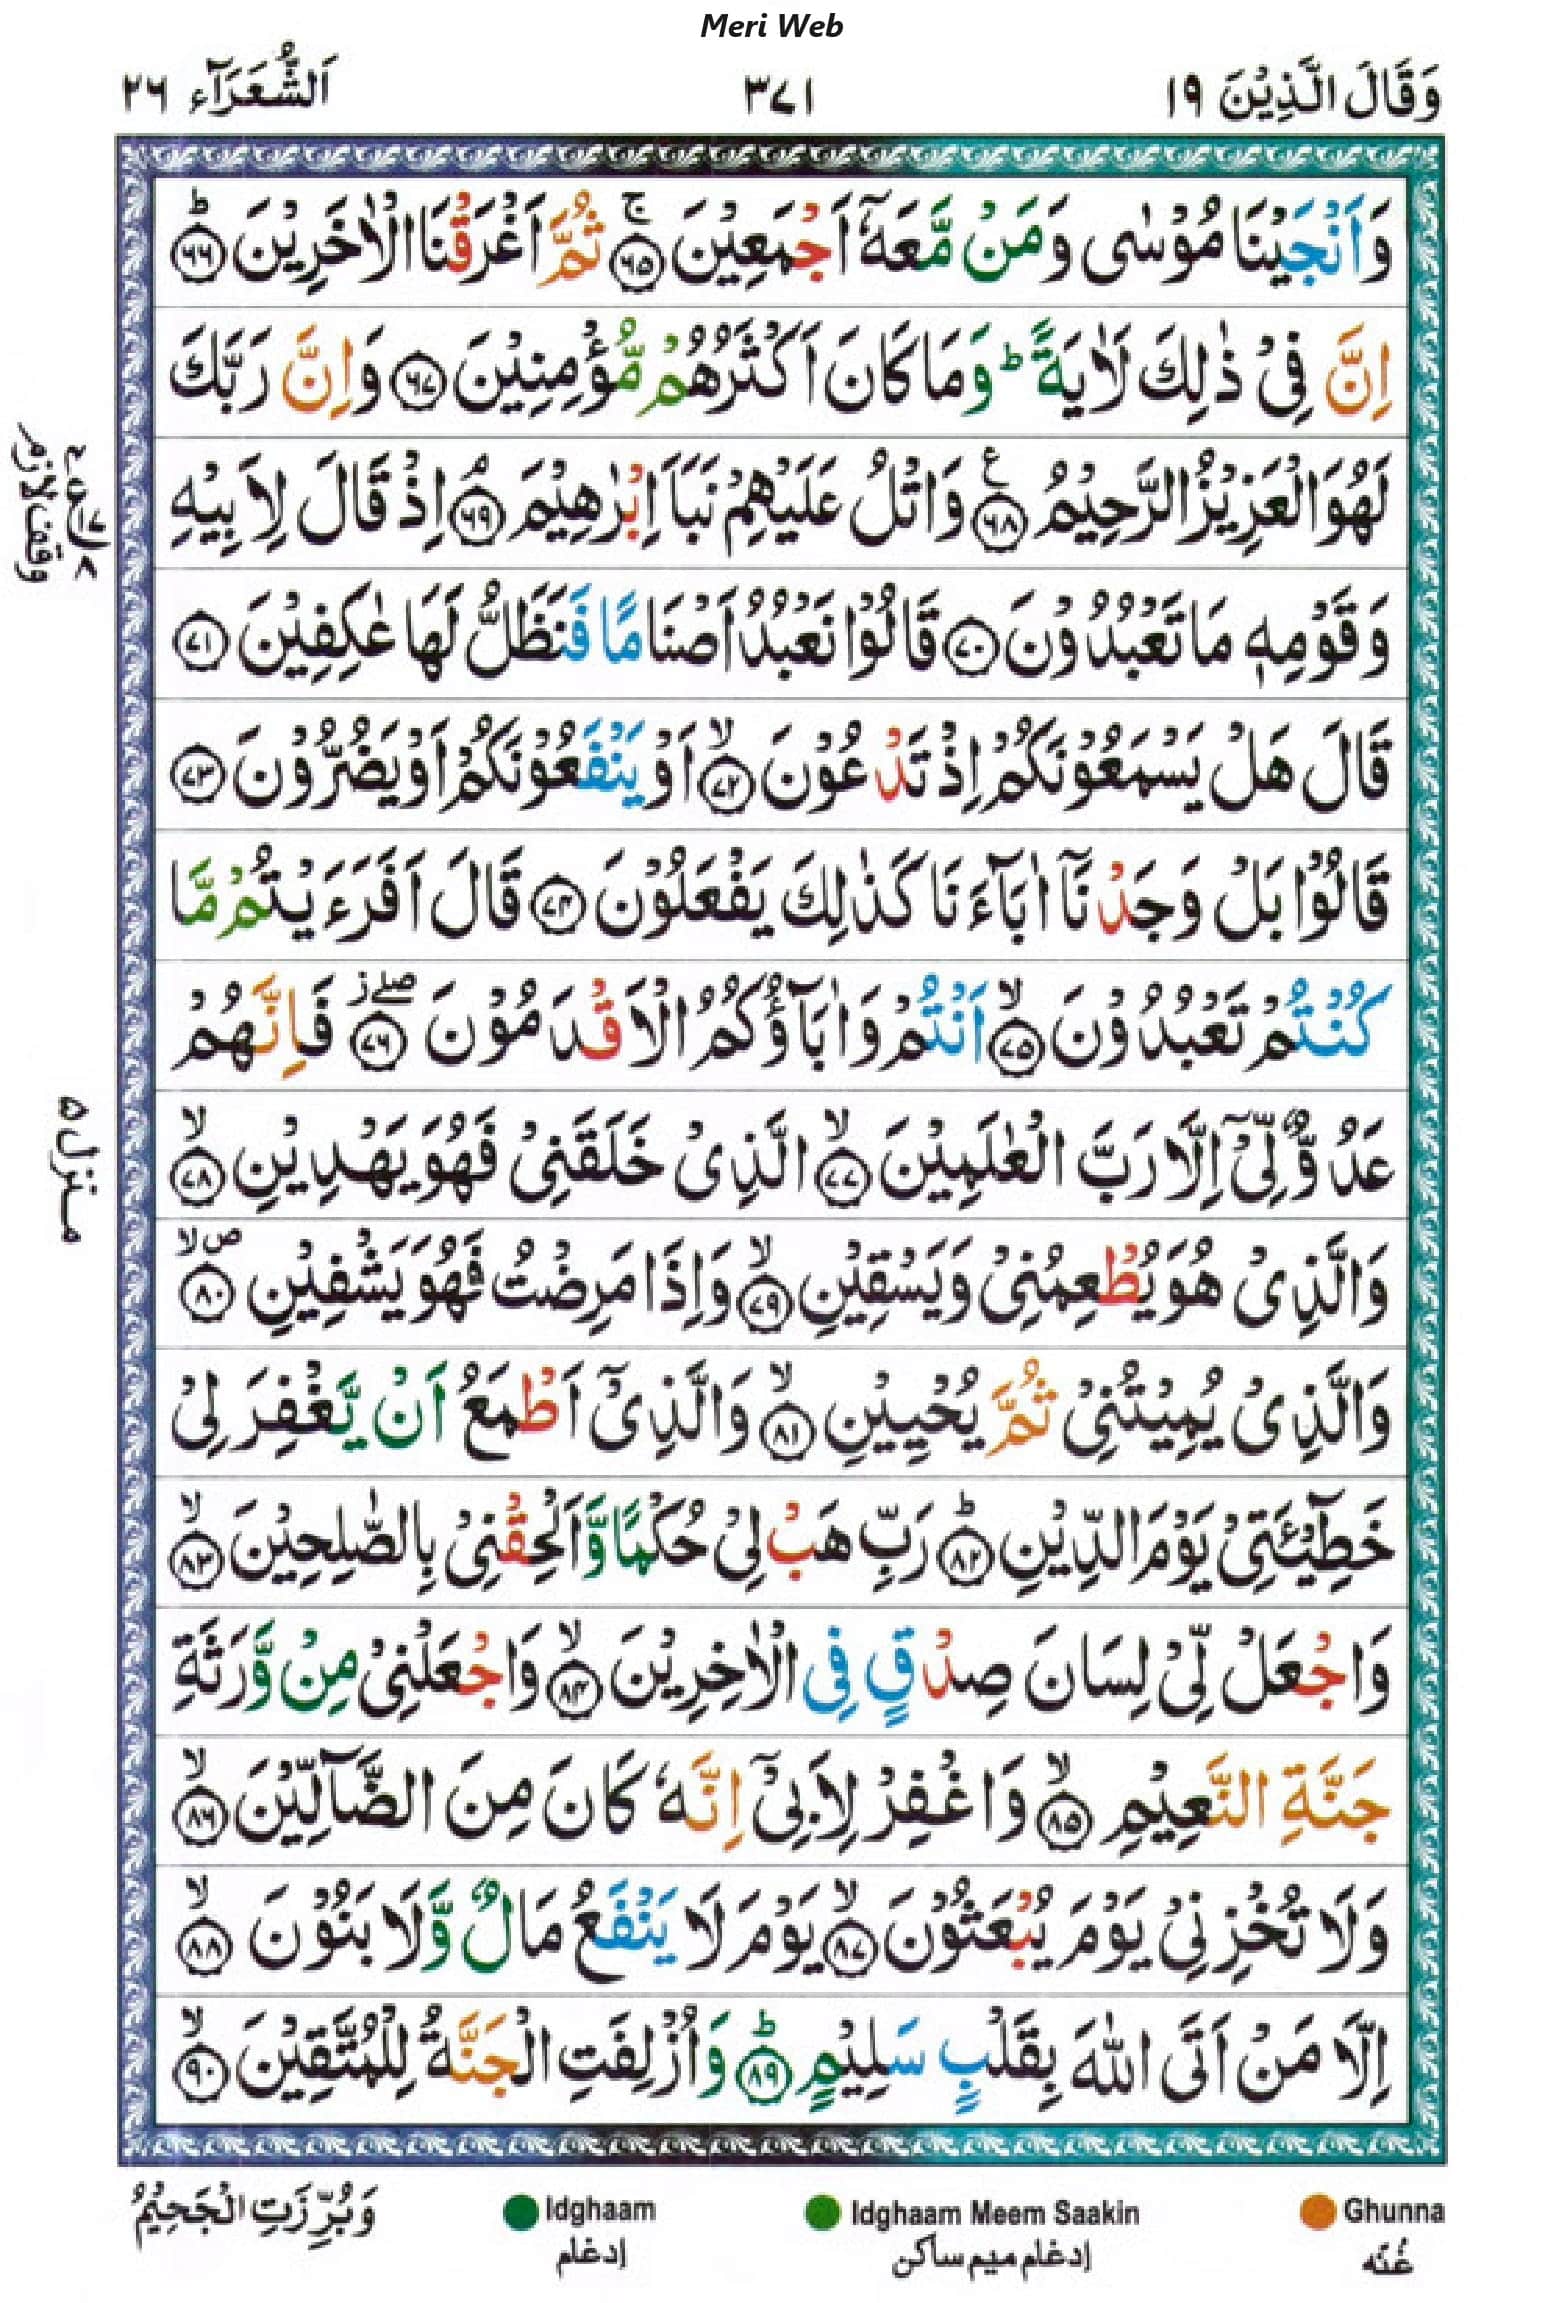 Meri Web
وَقَالَ الَّذِيْنَ ١٩
٣٧١
اَلشُّعَرَآء ٢٦
وَاَنْجَيْنَا مُوْسٰى وَمَنْ مَّعَهٗۤ اَجْمَعِيْنَ ۚ‏ ﴿۶۵﴾ ثُمَّ اَغْرَقْنَا الْاٰخَرِيْنَ ؕ‏ ﴿۶۶﴾
اِنَّ فِىْ ذٰلِكَ لَاٰيَةً  ؕ وَمَا كَانَ اَكْثَرُهُمْ مُّؤْمِنِيْنَ‏ ﴿۶۷﴾ وَاِنَّ رَبَّكَ
لَهُوَ الْعَزِيْزُ الرَّحِيْمُ ‏ ﴿۶۸﴾ ع وَاتْلُ عَلَيْهِمْ نَبَاَ اِبْرٰهِيْمَ ۘ‏ ﴿۶۹﴾ اِذْ قَالَ لِاَبِيْهِ
وَقَوْمِهٖ مَا تَعْبُدُوْنَ‏ ﴿۷۰﴾ قَالُوْا نَعْبُدُ اَصْنَامًا فَنَظَلُّ لَهَا عٰكِفِيْنَ‏ ﴿۷۱﴾
قَالَ هَلْ يَسْمَعُوْنَكُمْ اِذْ تَدْعُوْنَ ۙ‏ ﴿۷۲﴾ اَوْ يَنْفَعُوْنَكُمْ اَوْ يَضُرُّوْنَ‏ ﴿۷۳﴾
قَالُوْا بَلْ وَجَدْنَاۤ اٰبَآءَنَا كَذٰلِكَ يَفْعَلُوْنَ‏ ﴿۷۴﴾ قَالَ اَفَرَءَيْتُمْ مَّا
كُنْتُمْ تَعْبُدُوْنَ ۙ‏ ﴿۷۵﴾ اَنْتُمْ وَاٰبَآؤُكُمُ الْاَقْدَمُوْنَ صلے ز ﴿۷۶﴾ فَاِنَّهُمْ
عَدُوٌّ لِّىْۤ اِلَّا رَبَّ الْعٰلَمِيْنَ ۙ‏ ﴿۷۷﴾ الَّذِىْ خَلَقَنِىْ فَهُوَ يَهْدِيْنِ ۙ‏ ﴿۷۸﴾
وَالَّذِىْ هُوَ يُطْعِمُنِىْ وَيَسْقِيْنِ ۙ‏ ﴿۷۹﴾ وَاِذَا مَرِضْتُ فَهُوَ يَشْفِيْنِ ص لا ﴿۸۰﴾
وَالَّذِىْ يُمِيْتُنِىْ ثُمَّ يُحْيِيْنِ ۙ‏ ﴿۸۱﴾ وَالَّذِىْۤ اَطْمَعُ اَنْ يَّغْفِرَ لِىْ
خَطِٓيْئَتِىْ يَوْمَ الدِّيْنِ ؕ‏ ﴿۸۲﴾ رَبِّ هَبْ لِىْ حُكْمًا وَّاَلْحِقْنِىْ بِالصّٰلِحِيْنَ ۙ‏ ﴿۸۳﴾
وَاجْعَلْ لِّىْ لِسَانَ صِدْقٍ فِى الْاٰخِرِيْنَ ۙ‏ ﴿۸۴﴾ وَاجْعَلْنِىْ مِنْ وَّرَثَةِ
جَنَّةِ النَّعِيْمِ ۙ‏ ﴿۸۵﴾ وَاغْفِرْ لِاَبِىْۤ اِنَّهٗ كَانَ مِنَ الضَّآلِّيْنَ ۙ‏ ﴿۸۶﴾
وَلَا تُخْزِنِىْ يَوْمَ يُبْعَثُوْنَ ۙ‏ ﴿۸۷﴾ يَوْمَ لَا يَنْفَعُ مَالٌ وَّلَا بَنُوْنَ ۙ‏ ﴿۸۸﴾
اِلَّا مَنْ اَتَى اللّٰهَ بِقَلْبٍ سَلِيْمٍ ؕ‏ ﴿۸۹﴾ وَاُزْلِفَتِ الْجَنَّةُ لِلْمُتَّقِيْنَ ۙ‏ ﴿۹۰﴾
وقف لازم
منزل ۵
Ghunna
غُنّه
Idghaam Meem Saakin
إدغام ميم ساكن
Idghaam
إدغام
وَبُرِّزَتِ الْجَحِيْمُ